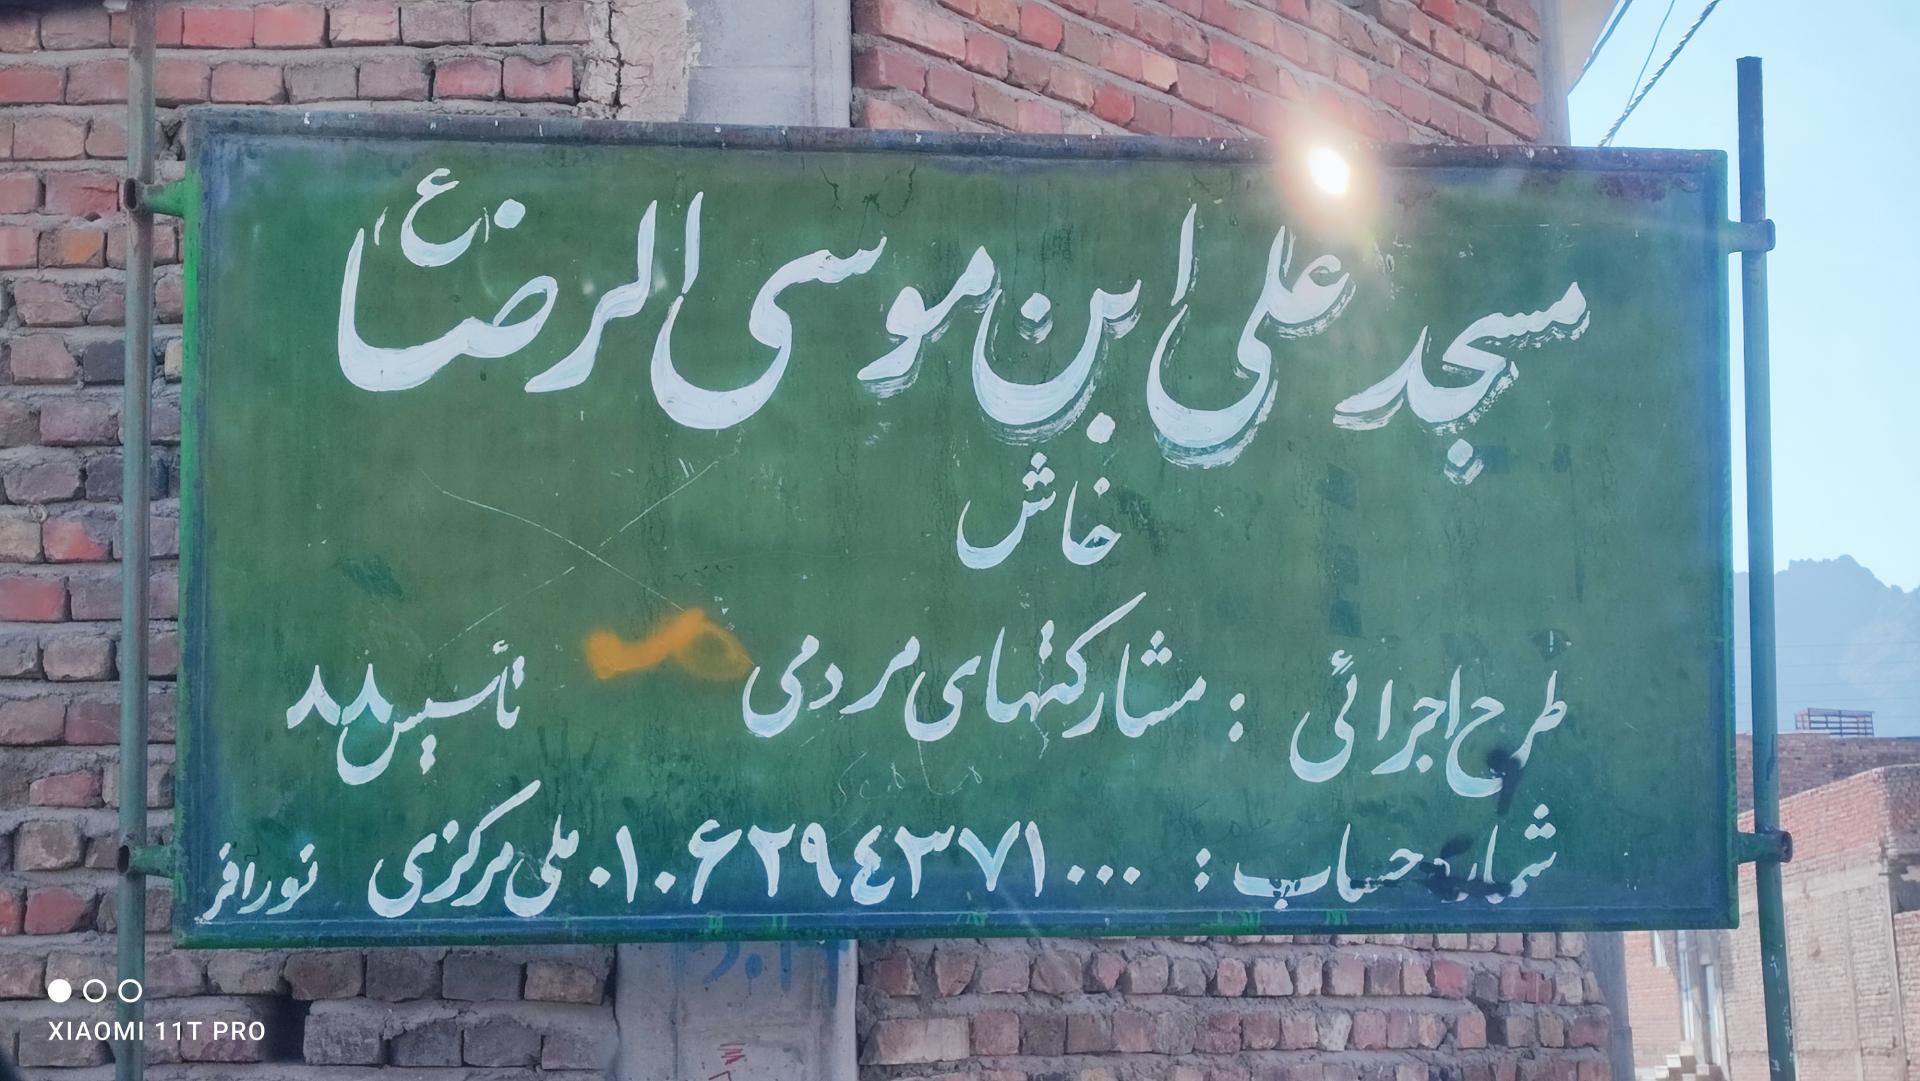 مسجد علی ابن موسی الرضا (ع)
خاش
طرح اجرائی : مشارکتهای مردمی تأسیس ۸۸
شماره حساب : ۰۱۰۶۲۹۴۳۷۱۰۰۰ ملی مرکزی نورافز
XIAOMI 11T PRO